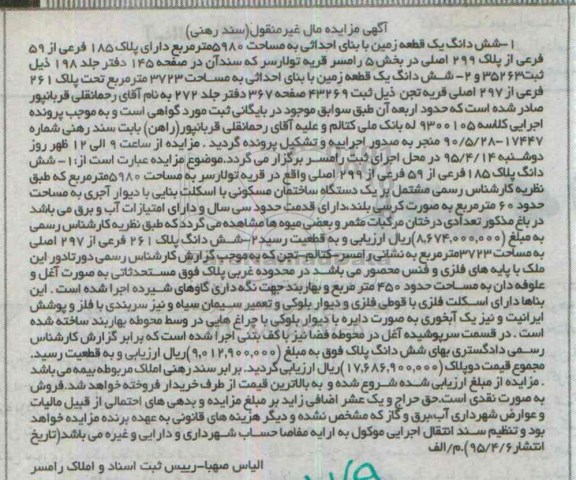 آگهی مزایده مال غیرمنقول(سند رهنی)
۱-شش دانگ یک قطعه زمین با بنای احداثی به مساحت ۵۹۸۰مترمربع دارای پلاک ۱۸۵ فرعی از ۵۹
فرعی از پلاک ۲۹۹ اصلی در بخش ۵ رامسر قریه تولارسر که سند آن در صفحه ۱۴۵ دفتر جلد ۱۹۸ ذیل
ثبت ۳۵۲۶۳ و ۲- شش دانگ یک قطعه زمین با بنای احداثی به مساحت ۳۷۲۳ مترمربع تحت پلاک ۲۶۱
فرعی از ۲۹۷ اصلی قریه تجن ذیل ثبت ۴۳۲۶۹ صفحه ۳۶۷ دفتر جلد ۲۷۲ به نام آقای رحمانقلی قربانپور
صادر شده است که حدود اربعه آن طبق سوابق موجود در بایگانی ثبت مورد گواهی است و به موجب پرونده
اجرایی کلاسه ۹۳۰۰۱۰۵ له بانک ملی کتالم و علیه آقای رحمانقلی قربانپور(راهن) بابت سند رهنی شماره
۱۷۴۴۷-۹۰/۵/۲۸ منجر به صدور اجراییه و تشکیل پرونده گردید . مزایده از ساعت ۹ الی ۱۲ ظهر روز
دوشنبه ۹۵/۴/۱۴ در محل اجرای ثبت رامسر برگزار می گردد.موضوع مزایده عبارت است از:۱- شش
دانگ پلاک ۱۸۵ فرعی از ۵۹ فرعی از ۲۹۹ اصلی واقع در قریه تولارسر به مساحت ۵۹۸۰مترمربع که طبق
نظریه کارشناس رسمی مشتمل بر یک دستگاه ساختمان مسکونی با اسکلت بنایی با دیوار آجری به مساحت
حدود ۶۰ مترمربع به صورت کرسی بلند،دارای قدمت حدود سی سال و دارای امتیازات آب و برق می باشد
در باغ مذکور تعدادی درختان مرکبات مثمر و بعضی میوه ها مشاهده می گردد که طبق نظریه کارشناس رسمی
به مبلغ (۸,۶۷۴,۰۰۰,۰۰۰)ریال ارزیابی و به قطعیت رسید ۲-شش دانگ پلاک ۲۶۱ فرعی از ۲۹۷ اصلی
به مساحت ۳۷۲۳مترمربع به نشانی رامسر-کتالم-تجن که به موجب گزارش کارشناس رسمی دورتادور این
ملک با پایه های فلزی و فنس محصور می باشد در محدوده غربی پلاک فوق مستحدثاتی به صورت آغل و
علوفه دان به مساحت حدود ۴۵۰ متر مربع و بهاربند جهت نگه داری گاوهای شیرده اجرا شده است . این
بناها دارای اسکلت فلزی با قوطی فلزی و دیوار بلوکی و تعمیر سیمان سیاه و نیز سربندی با فلز و پوشش
ایرانیت و نیز یک آبخوری به صورت دایره با دیوار بلوکی با چراغ هایی در وسط محوطه بهاربند ساخته شده
است . در قسمت سرپوشیده آغل در محوطه فضا نیز با کف بتنی اجرا شده است که برابر گزارش کارشناس
رسمی دادگستری بهای شش دانگ پلاک فوق به مبلغ (۹,۰۱۲,۹۰۰,۰۰۰)ریال ارزیابی و به قطعیت رسید.
مجموع قیمت دوپلاک (۱۷,۶۸۶,۹۰۰,۰۰۰)ریال ارزیابی گردید. برابر سند رهنی املاک مربوطه بیمه می باشد
. مزایده از مبلغ ارزیابی شده شروع شده و به بالاترین قیمت از طرف خریدار فروخته خواهد شد.فروش
به صورت نقدی است.حق حراج و یک عشر اضافی زاید بر مبلغ مزایده و بدهی های احتمالی از قبیل مالیات
و عوارض شهرداری آب،برق و گاز که مشخص نشده و دیگر هزینه های قانونی به عهده برنده مزایده خواهد
بود و تنظیم سند انتقال اجرایی موکول به ارایه مفاصا حساب شهرداری و دارایی و غیره می باشد(تاریخ
انتشار ۹۵/۴/۶).م/الف
الیاس صهبا-رییس ثبت اسناد و املاک رامسر